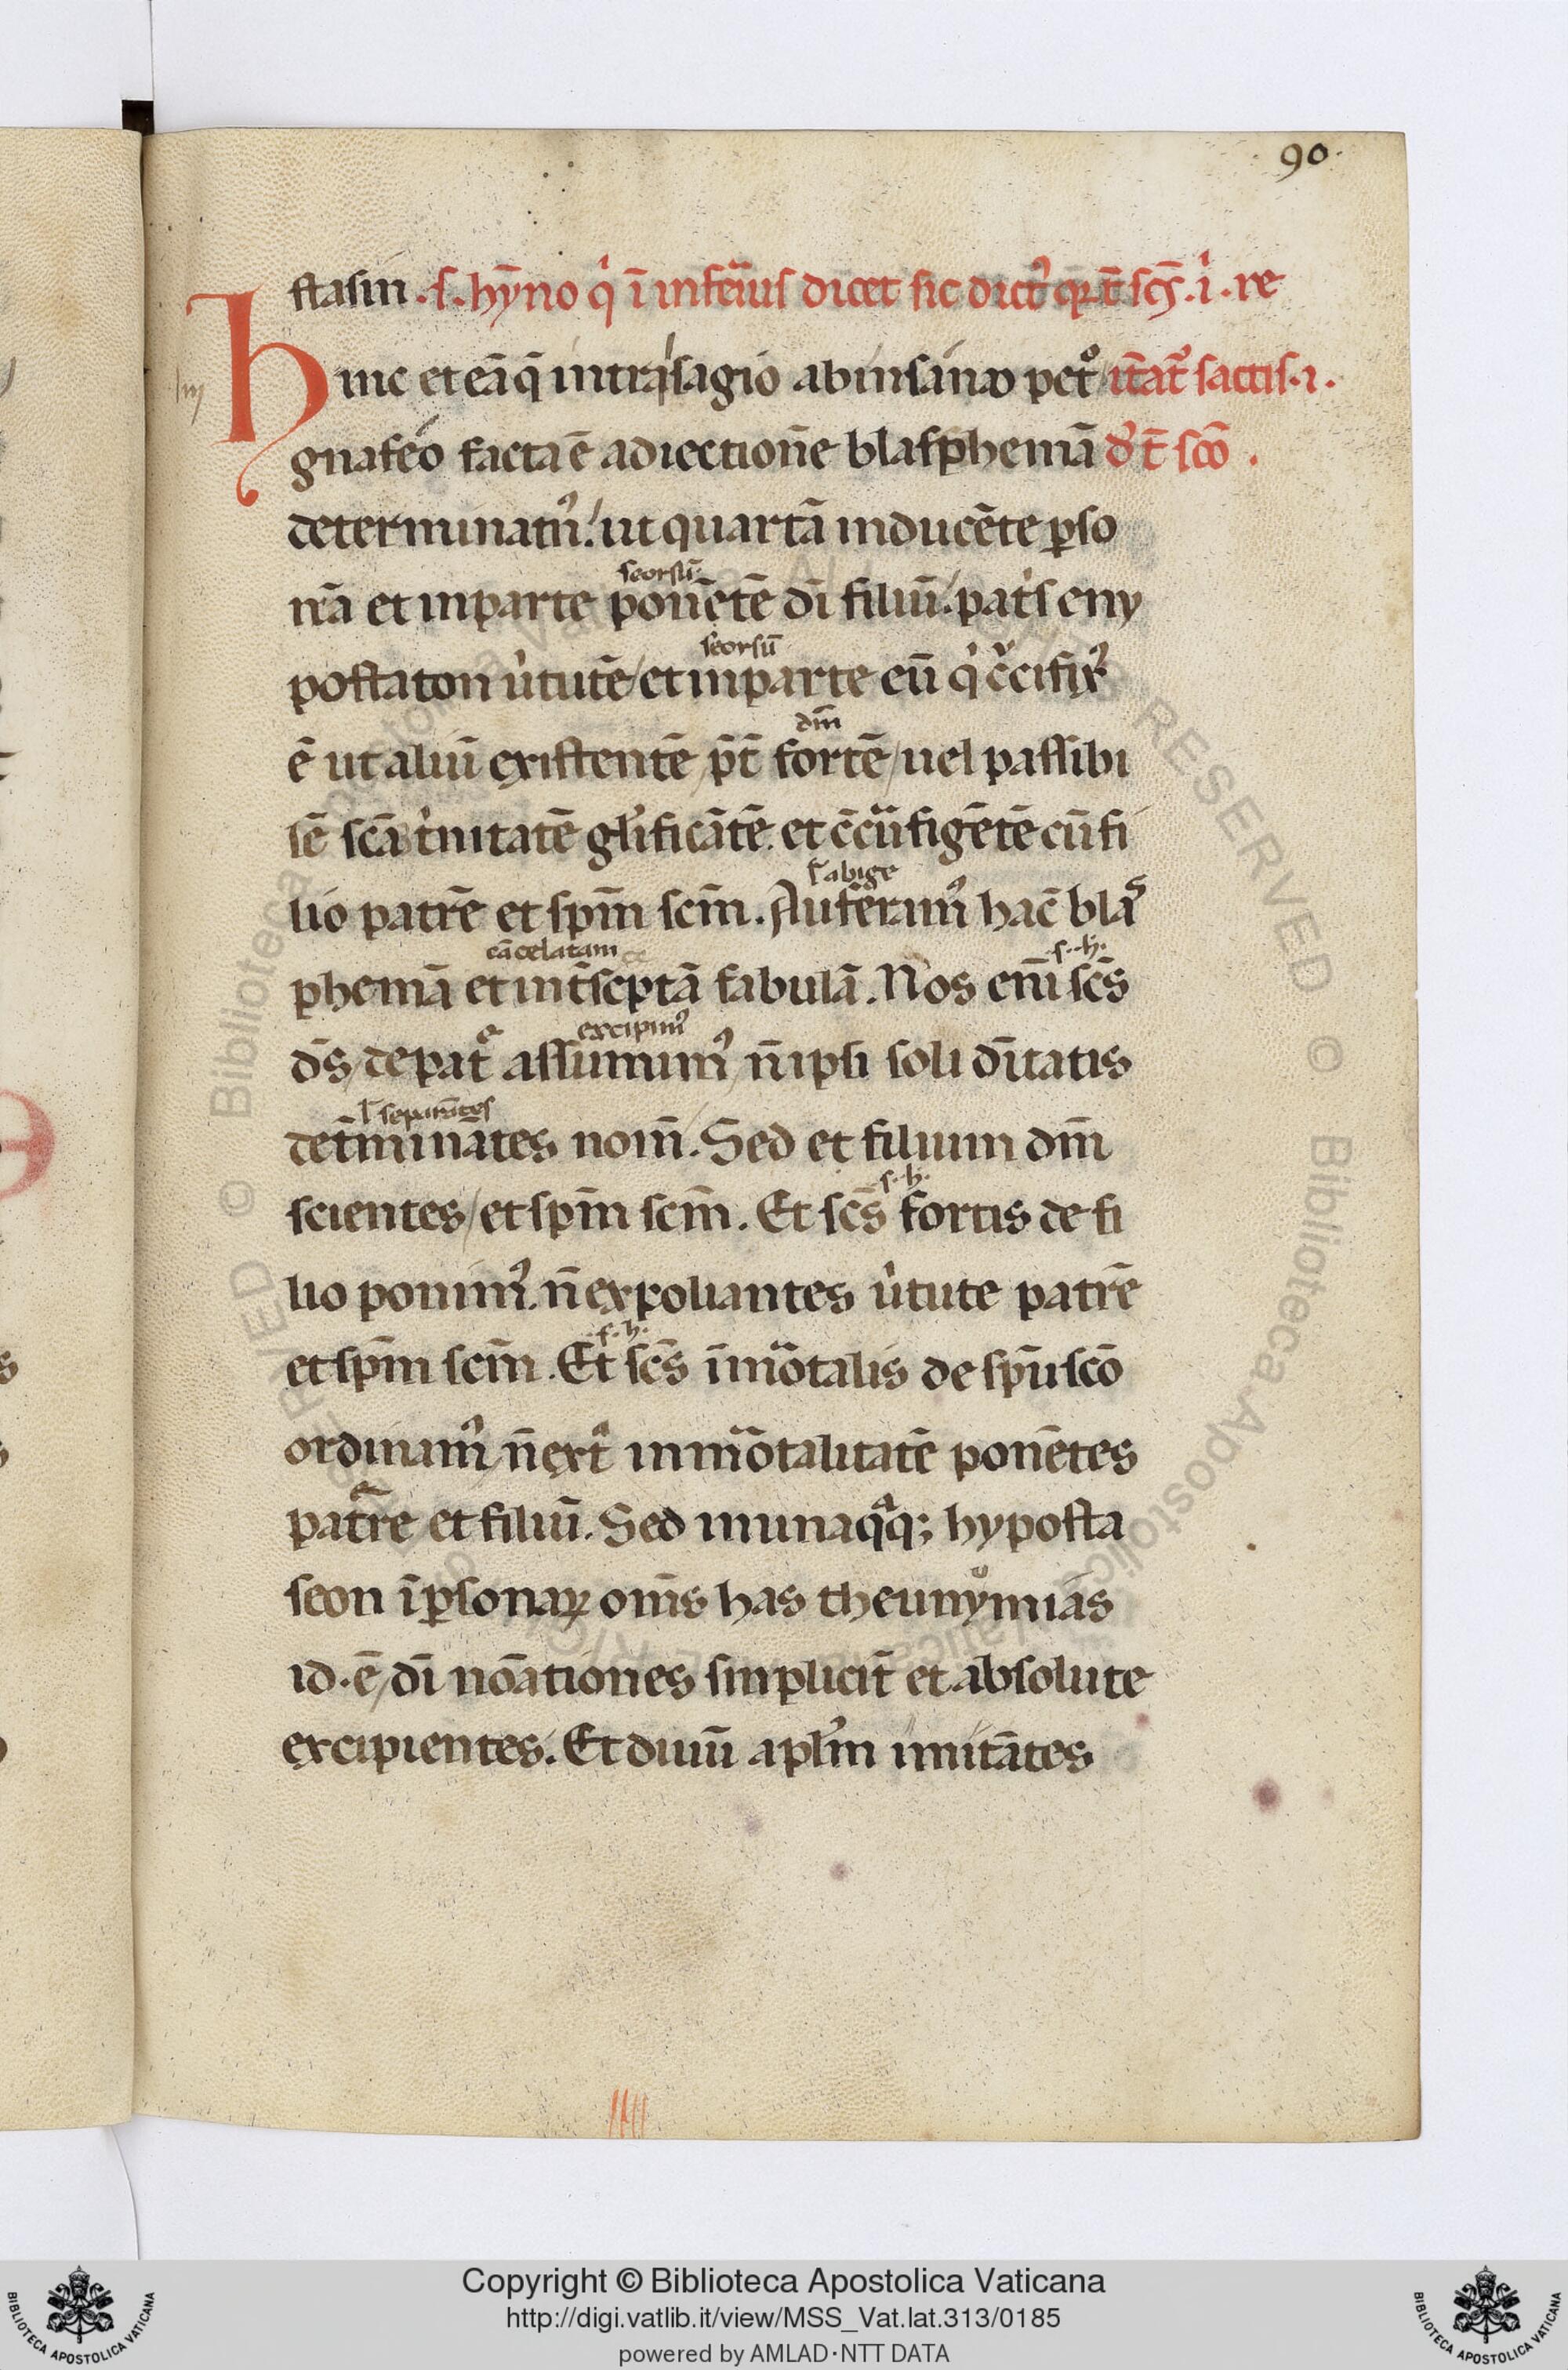 90.
stasin .s. hȳno q̇ ī infeꝰiuſ dicet sic dictꝰ
hinc et eā q̄ in trisagio ab insano petº
gnafeo facta ē adiectione blasphemā
determinatꝰ. ut quartā inducēte ꝑso
seorsū
nā et in parte ponētē dī filiū. patͥs eny
seorsū
postaton uͥtutē et in parte eū q̇ cͬcifixꝰ
dm̄
ē ut aliū existentē p̄t fortē / uel passibi
lē scā tͥnitatē glͥificātē. et ccͬifigētē cū fi
ł abige
lio patrē et spm̄ scm̄. Auferimꝰ hāc blaˢ
cācelatam
.s. h̄.
phemā et int̄septā fabulā. Nos eni scs̄
excipimꝰ
ds̄ / de patͤ assumimꝰ / n̄ ipsi soli dītatis
ł separātes
det̄minātes nom̄. Sed et filium dm̄
.s. h̄.
scientes / et spm̄ scm̄. Et scs̄ fortis de fi
lio ponimꝰ. n̄ expoliantes uͥtute patrē
.s. h̄.
et spm̄ scm̄. Et scs̄ īmōtalis de spū scō
ordinamꝰ / n̄ extͣ inmōtalitatē ponētes
patrē et filiū. Sed in unaqͣq; hyposta
seon ī ꝑsonaꝝ om̄s has theunymias
id.ē / dī nōationes simplicit̄ et absolute
excipientes. Et diuiū aplm̄ imitātes
Copyright © Biblioteca Apostolica Vaticana
http://digi.vatlib.it/view/MSS_Vat.lat.313/0185
powered by AMLAD·NTT DATA
BIBLIOTECA APOSTOLICA VATICANA
BIBLIOTECA APOSTOLICA VATICANA